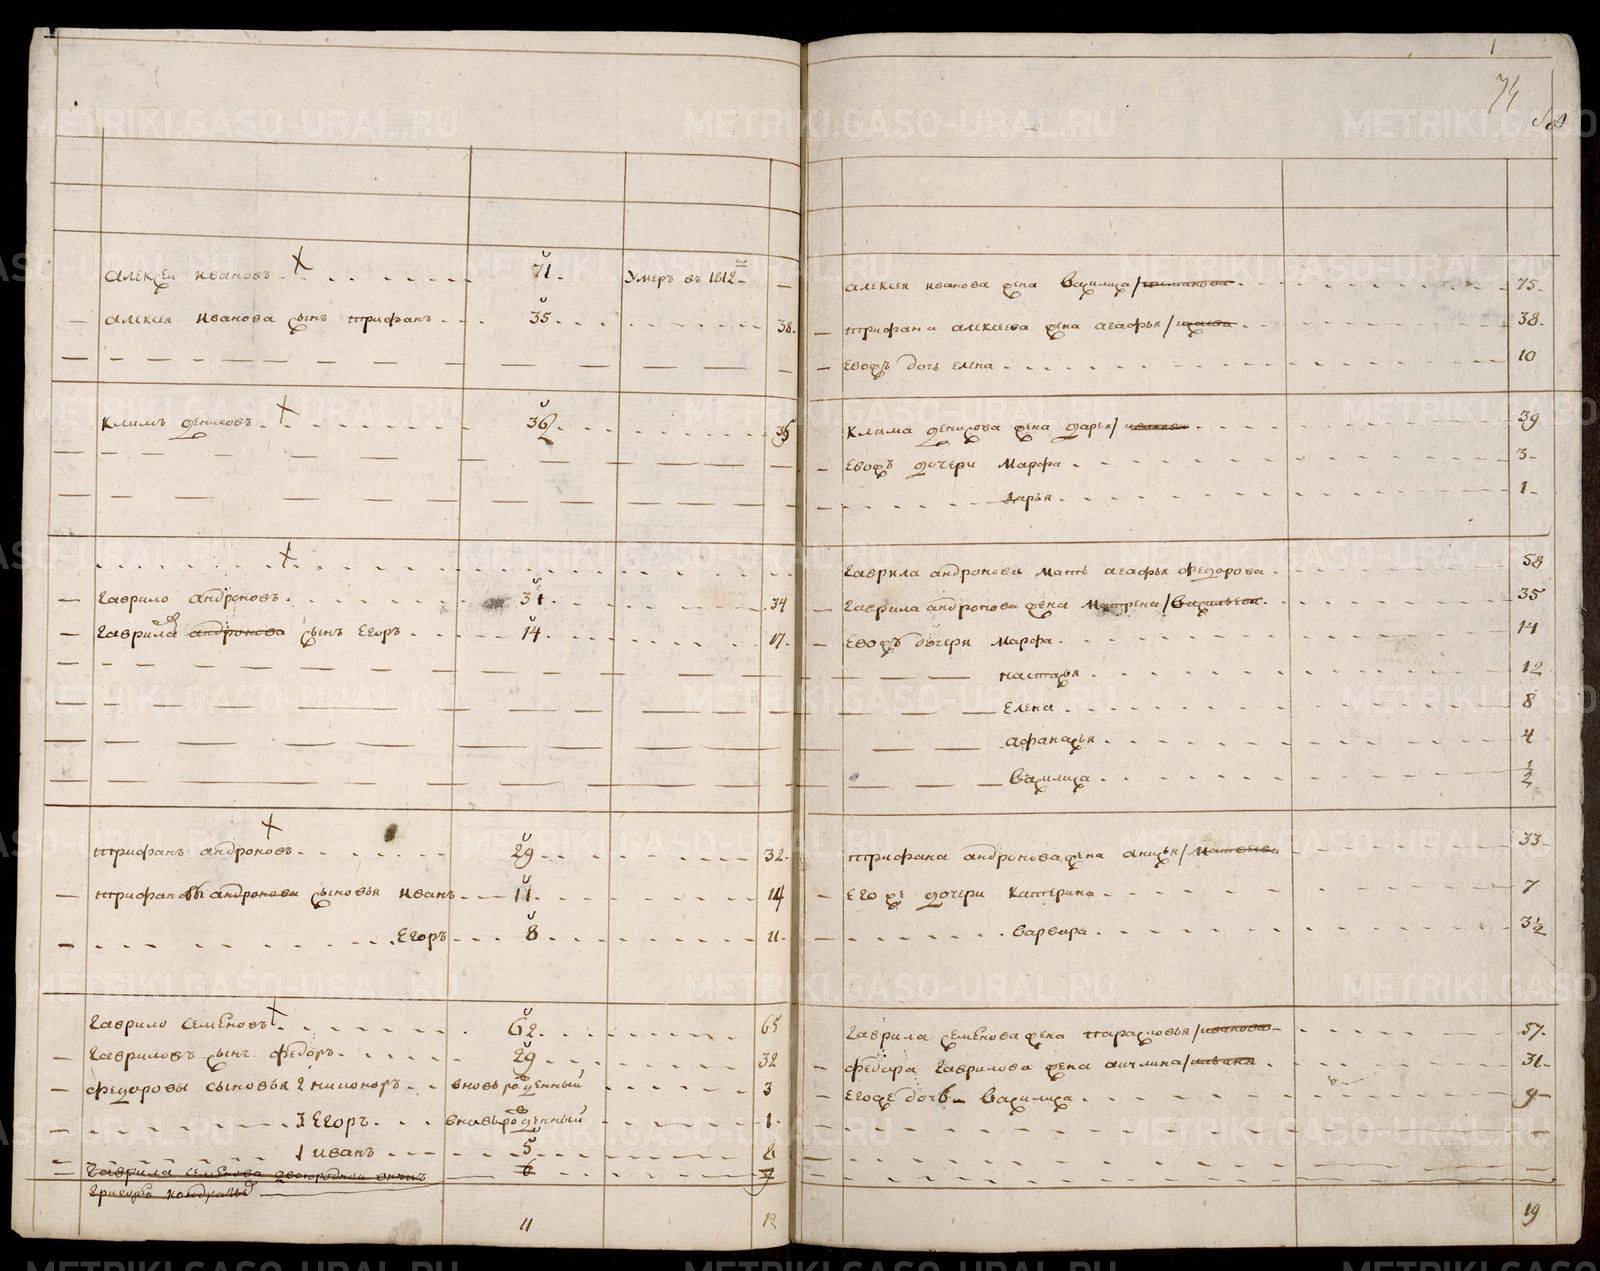 74
Алексеи Ивановъ 71 Умеръ въ 1812
Алексея Иванова сынъ Трифанъ 35 38
Климъ Денисовъ 36 35
Гаврило Андроновъ 31 34
Гаврила Андронова сынъ Егоръ 14 17
Трифанъ Андроновъ 29 32
Трифановы Андронова сыновья Иванъ 11 14
Егоръ 8 11
Гаврило Семеновъ 62 65
Гавриловъ сынъ Федоръ 29 32
Федоровы сыновья 2 Никоноръ вновьрожденный 3
3 Егоръ вновьрожденный 1
1 Иванъ 5 8
Гаврила Семенова двоюродной внукъ 6 9
Григореи Кондратьевъ
11 12
Алексея Иванова жена Василиса 75
Трифана Алексеева жена Агафья 38
Евожъ дочь Елена 10
Клима Денисова жена Дарья / Иванова 39
Евожъ дочери Марфа 3
Дарья 1
Гаврила Андронова мать Агафья Федорова 58
Гаврила Андронова жена Матрена / Васильева 35
Евожъ дочери Марфа 14
Настасья 12
Елена 8
Афанасья 4
Василиса 1/2
Трифана Андронова жена Анисья / Матвеева 33
Его же дочери Катерина 7
Варвара 3 1/2
Гаврила Семенова жена Парасковья / Иванова 57
Федора Гаврилова жена 31
Егоже дочь Василиса 9
19
METRIKI.GASO-URAL.RU